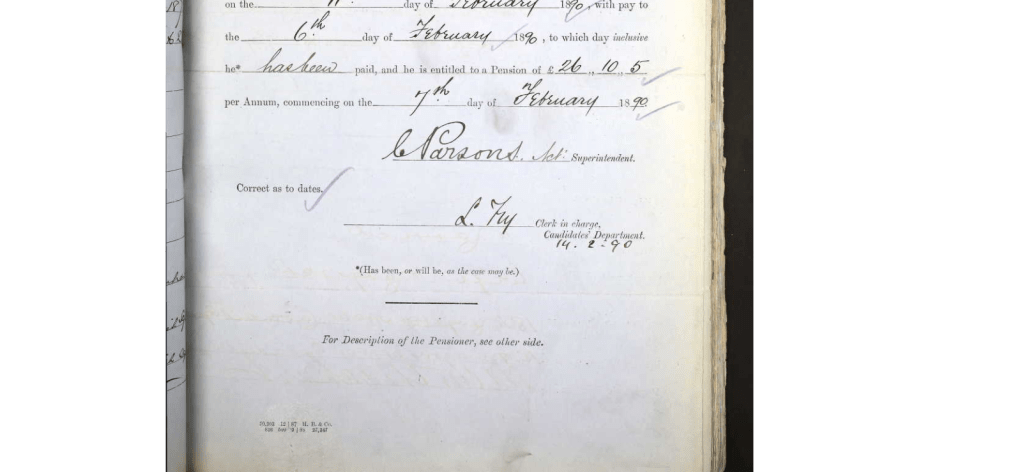 on the day of February 1890, with pay to
the 6th day of February 1890, to which day inclusive
he* has been paid, and he is entitled to a Pension of £26 ,, 10 ,, 5
per Annum, commencing on the 7th day of February 1890.
C Parsons. Act: Superintendent.
Correct as to dates.
L. Fry Clerk in charge,
Candidates' Department.
14. 2. 90
*(Has been, or will be, as the case may be.)
For Description of the Pensioner, see other side.